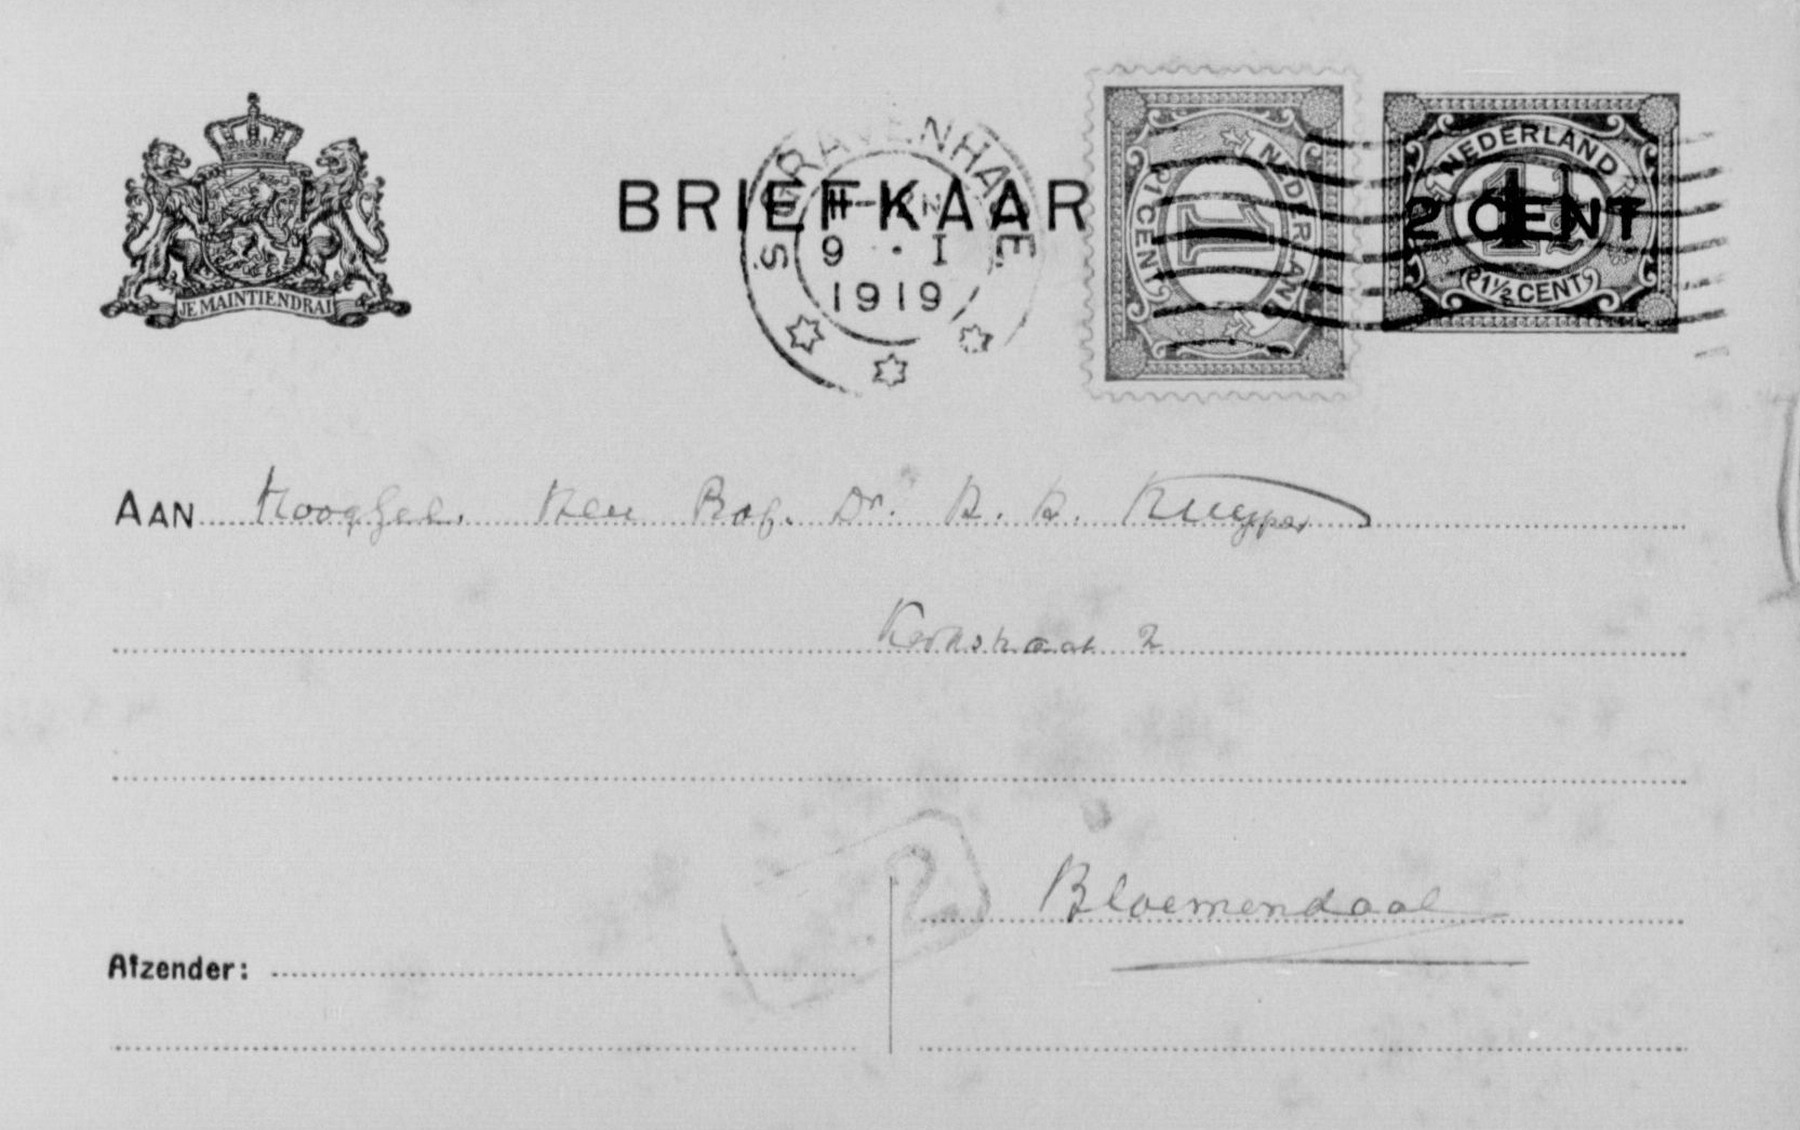 JE MAINTIENDRAI
BRIEFKAAR
'S GRAVENHAGE
9 · I
1919
NEDERLAND
1
1 CENT
NEDERLAND
2 CENT
1½ CENT
AAN HoogGel. Heer Prof. Dr. H. H. Kuyper
Kerkstraat 2
2
Bloemendaal
Afzender: